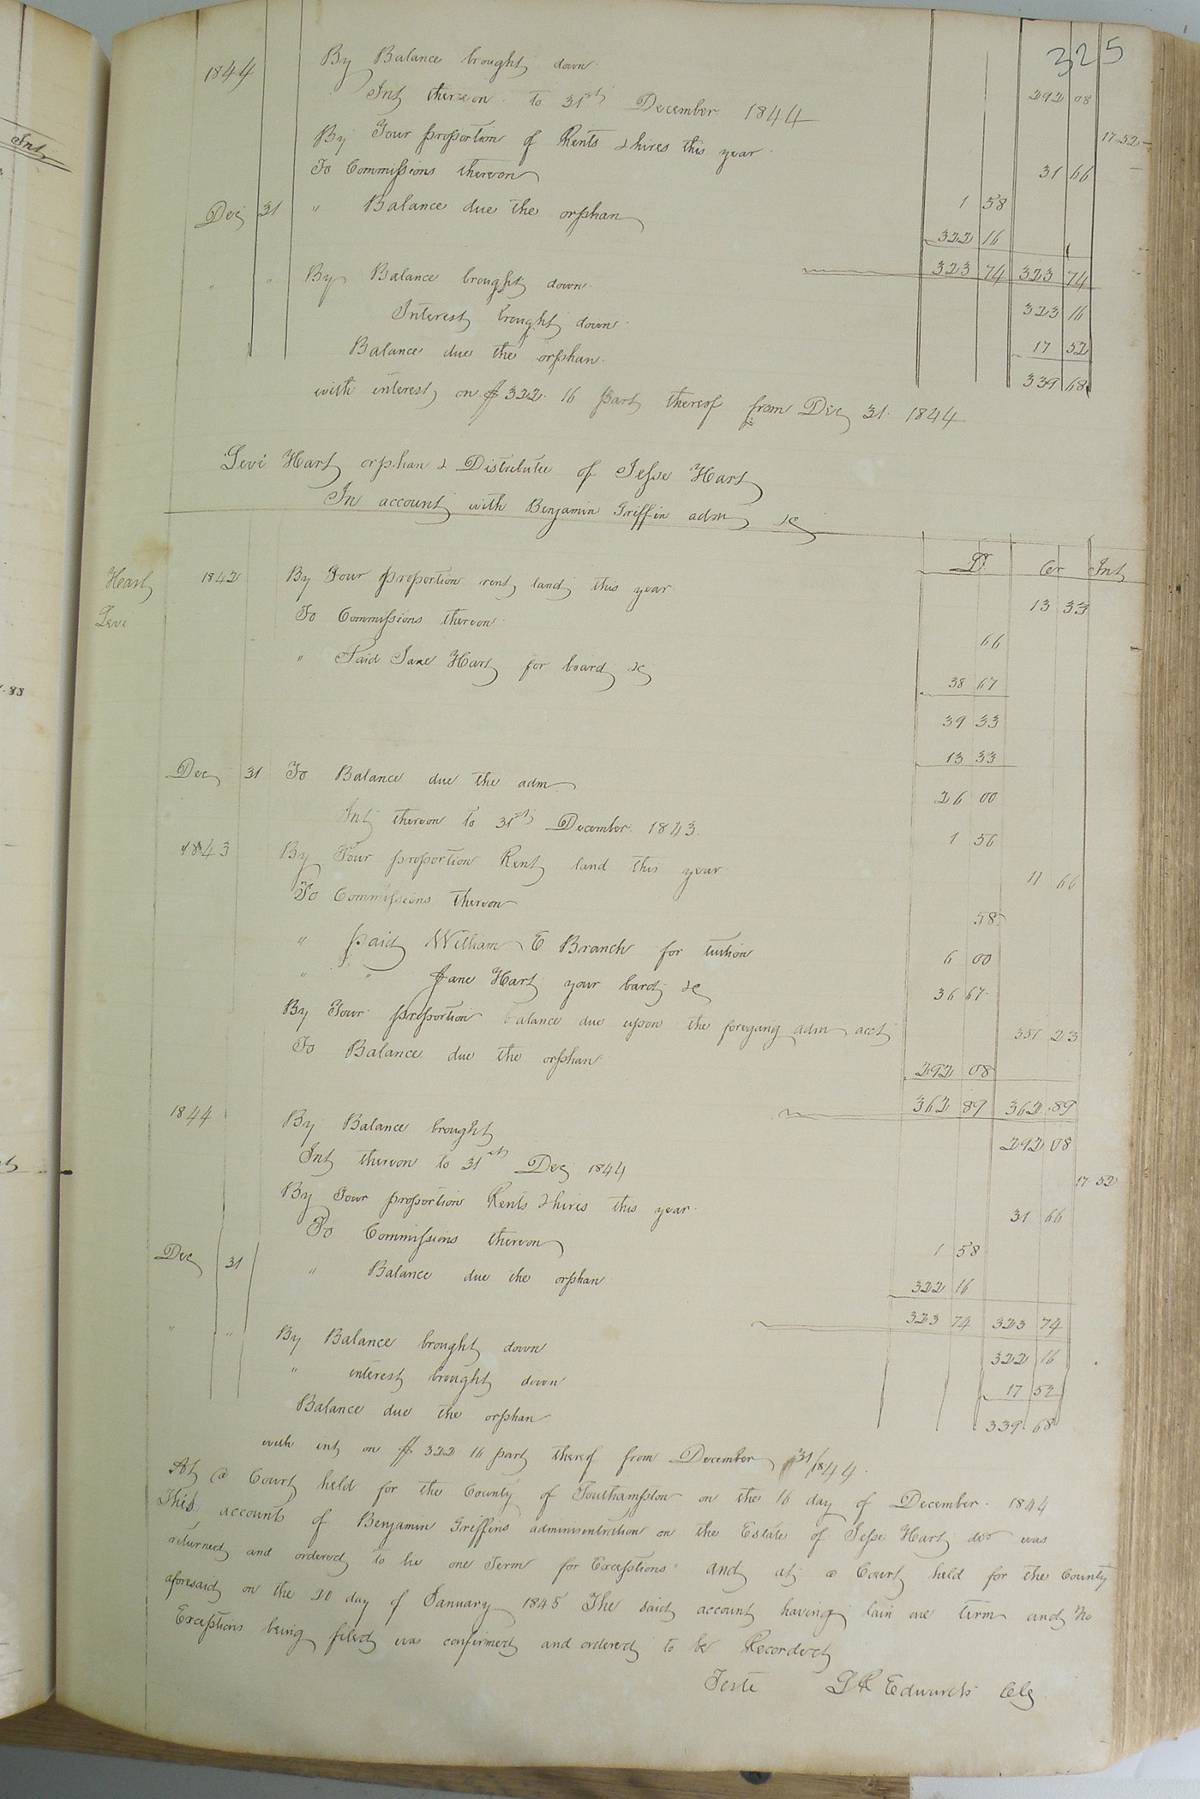 325
1844 By Balance brought down 292 08
Int thereon to 31st December 1844 17 52
By Your proportion of Rents & hires this year 31 66
To Commissions thereon 1 58
Dec 31 " Balance due the orphan 322 16
323 74 323 74
" " By Balance brought down 323 16
Interest brought down 17 52
Balance due the orphan 339 68
with interest on $322. 16 part thereof from Dec 31. 1844
Levi Hart orphan & Distributee of Jesse Hart
In account with Benjamin Griffin adm &c
Dr Cr Int
Hart Levi
1842 By Your proportion rent land this year 13 33
To Commissions thereon 66
" Paid Jane Hart for board &c 38 67
39 33
13 33
Dec 31 To Balance due the adm 26 00
Int thereon to 31st December 1843 1 56
1843 By Your proportion Rent land this year 11 66
To Commissions thereon 58
" paid William E Branch for tuition 6 00
" " Jane Hart your bard &c 36 67
By Your proportion balance due upon the foregoing adm acct 351 23
To Balance due the orphan 292 08
362 89 362 89
1844 By Balance brought 292 08
Int thereon to 31st Dec 1844 17 52
By Your proportion Rents & hires this year 31 66
To Commissions thereon 1 58
Dec 31 " Balance due the orphan 322 16
323 74 323 74
" " By Balance brought down 322 16
" interest brought down 17 52
Balance due the orphan 339 68
with int on $ 322 16 part therof from December 31/1844.
At a Court held for the County of Southampton on the 16 day of December 1844
This accounts of Benjamin Griffins administration on the Estate of Jesse Hart dec was
returned and ordered to lie one Term for Exceptions and at a Court held for the County
aforesaid on the 20 day of January 1845 The said account having lain one term and No
Exceptions being filed was confirmed and ordered to be Recorded
Teste L R Edwards Clk